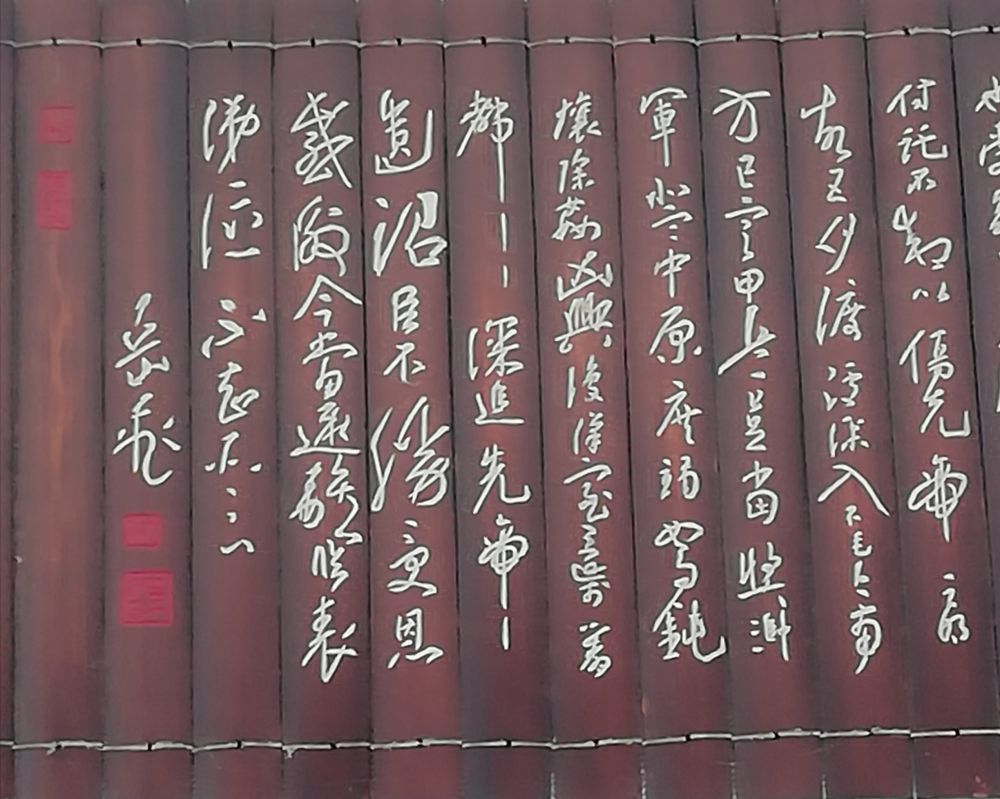 付託不效以傷先帝之明
故五月渡瀘深入不毛今南
方已定甲兵已足當獎帥
軍北定中原庶竭駑鈍
攘除姦凶興復漢室還於舊
都深追先帝
遺詔臣不勝受恩
感激今當遠離臨表
涕泣不知所云
岳飛